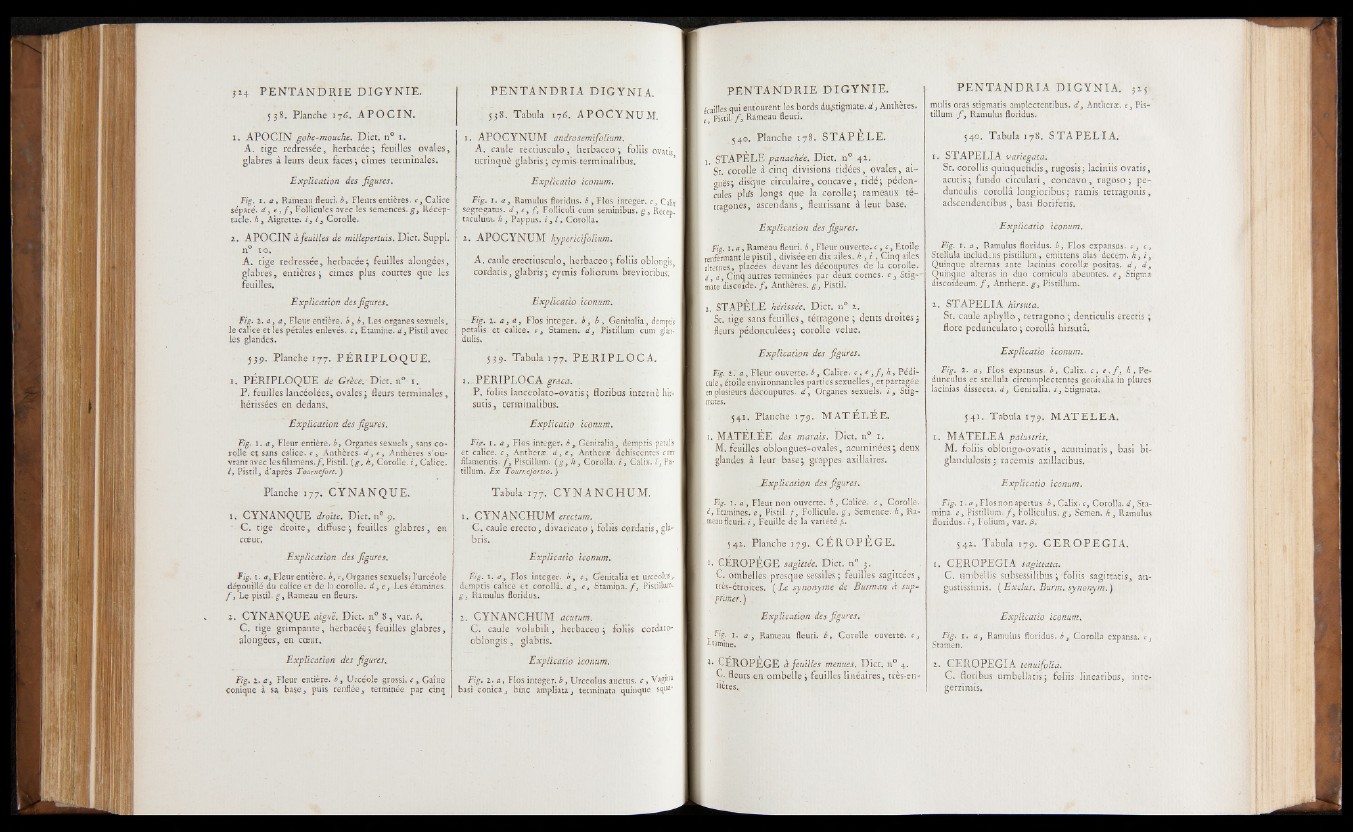 324 PENTANDRIE DIGYNIE.
538. Planche 176. APOCIN.
1. APOCIN gobe-mouche. Dict. n° 1.
A. tige redressée, herbacée; feuilles ovales,
glabres à leurs deux faces; cimes terminales.
Explication des figures.
Fig. 1. a, Rameau fleuri. b, Fleurs entières. c, Calice
séparé. d, e, f, Follicules avec les semences. g, Récep-
tacle. h, Aigrette. i, i, Corolle.
2. APOCIN à feuilles de millepertuis. Dict. Suppl.
n° 10.
A. tige redressée, herbacée; feuilles alongées,
glabres, entières; cimes plus courtes que les
feuilles.
Explication des figures.
Fig. 2. a, a, Fleur entière. b, b, Les organes sexuels,
le calice et les pétales enlevés. c, Étamine. d, Pistil avec
les glandes.
539. Planche 177. PÉRIPLOQUE.
1. PÉRIPLOQUE de Grèce. Dict. n° 1.
P. feuilles lancéolées, ovales; fleurs terminales,
hérissées en dedans.
Explication des figures.
Fig. 1. a, Fleur entière. b, Organes sexuels, sans co-
rolle et sans calice. c, Anthères. d, e, Anthères s'ou-
vrant avec les filamens. f, Pistil. (g, h, Corolle. i, Calice.
l, Pistil, d'après Tournefort.)
Planche 177. CYNANQUE.
1. CYNANQUE droite. Dict. n° 9.
C. tige droite, diffuse; feuilles glabres, en
cœur.
Explication des figures.
Fig. 1. a, Fleur entière. b, c, Organes sexuels; l'urcéole
dépouillé du calice et de la corolle. d, e, Les étamines.
f, Le pistil. g, Rameau en fleurs.
2. CYNANQUE aiguë. Dict. n° 8, var. b.
C. tige grimpante, herbacée; feuilles glabres,
alongées, en cœur.
Explication des figures.
Fig. 2. a, Fleur entière. b, Urcéole grossi. c, Gaîne
conique à sa base, puis renflée, terminée par cinq
PENTANDRIA DIGYNIA.
538. Tabula 176. APOCYNUM.
1. APOCYNUM androsemifolium.
A. caule rectiusculo, herbaceo; foliis ovatis,
utrinquè glabris; cymis terminalibus.
Explicatio iconum.
Fig. 1. a, Ramulus floridus. b, Flos integer. c, Calix
segregatus. d, e, f, Folliculi cum seminibus. g, Recep-
taculum. h, Pappus. i, l, Corolla.
2. APOCYNUM hypericifolium.
A. caule erectiusculo, herbaceo; foliis oblongis,
cordatis, glabris; cymis foliorum brevioribus.
Explicatio iconum.
Fig. 2. a, a, Flos integer. b, b, Genitalia, demptis
petalis et calice. c, Stamen. d, Pistillum cum glan-
dulis.
539. Tabula 177. PERIPLOCA.
1. PERIPLOCA græca.
P. foliis lanceolato-ovatis; floribus internè hir-
sutis, terminalibus.
Explicatio iconum.
Fig. 1. a, Flos integer. b, Genitalia, demptis petalis
et calice. c, Antheræ. d, e, Antheræ dehiscentes cum
filamentis. f, Pistillum. (g, h, Corolla. i, Calix. l, Pis-
tillum. Ex Tournefortio.)
Tabula 177. CYNANCHUM.
1. CYNANCHUM erectum.
C. caule erecto, divaricato; foliis cordatis, gla-
bris.
Explicatio iconum.
Fig. 1. a, Flos integer. b, c, Genitalia et urceolus,
demptis calice et corollâ. d, e, Stamina. f, Pistillum.
g, Ramulus floridus.
2. CYNANCHUM acutum.
C. caule volubili, herbaceo; foliis cordato-
oblongis, glabris.
Explicatio iconum.
Fig. 2. a, Flos integer. b, Urceolus auctus. c, Vagina
basi conica, hinc ampliata, terminata quinque squa-
PENTANDRIE DIGYNIE.
écailles qui entourent les bords du stigmate. d, Anthères.
e, Pistil. f, Rameau fleuri.
540. Planche 178. STAPÈLE.
1. STAPÈLE panachée. Dict. n° 42.
St. corolle à cinq divisions ridées, ovales, ai-
guës; disque circulaire, concave, ridé; pédon-
cules plus longs que la corolle; rameaux té-
tragones, ascendans, fleurissant à leur base.
Explication des figures.
Fig. 1. a, Rameau fleuri. b, Fleur ouverte. c, c, Étoile
renfermant le pistil, divisée en dix ailes. h, i, Cinq ailes
alternes, placées devant les découpures de la corolle.
d, d, Cinq autres terminées par deux cornes. e, Stig-
mate discoïde. f, Anthères. g, Pistil.
2. STAPÈLE hérissée. Dict. n° 2.
St. tige sans feuilles, tétragone; dents droites;
fleurs pédonculées; corolle velue.
Explication des figures.
Fig. 2. a, Fleur ouverte. b, Calice. c, e, f, h, Pédi-
cule, étoile environnant les parties sexuelles, et partagée
en plusieurs découpures. d, Organes sexuels. i, Stig-
mates.
541. Planche 179. MATÉLÉE.
1. MATÉLÉE des marais. Dict. n° 1.
M. feuilles oblongues-ovales, acuminées; deux
glandes à leur base; grappes axillaires.
Explication des figures.
Fig. 1. a, Fleur non ouverte. b, Calice. c, Corolle.
d, Étamines. e, Pistil. f, Follicule. g, Semence. h, Ra-
meau fleuri. i, Feuille de la variété β.
542. Planche 179. CÉROPÈGE.
1. CÉROPÈGE sagittée. Dict. n° 3.
C. ombelles presque sessiles; feuilles sagittées,
très-étroites. (Le synonyme de Burman à sup-
primer.)
Explication des figures.
Fig. 1. a, Rameau fleuri. b, Corolle ouverte. c,
Étamine.
2. CÉROPÈGE à feuilles menues. Dict. n° 4.
C. fleurs en ombelle; feuilles linéaires, très-en-
tières.
PENTANDRIA DIGYNIA. 325
mulis oras stigmatis amplectentibus. d, Antheræ. e, Pis-
tillum. f, Ramulus floridus.
540. Tabula 178. STAPELIA.
1. STAPELIA variegata.
St. corollis quinquefidis, rugosis; laciniis ovatis,
acutis; fundo circulari, concavo, rugoso; pe-
dunculis corollâ longioribus; ramis tetragonis,
adscendentibus, basi floriferis.
Explicatio iconum.
Fig. 1. a, Ramulus floridus. b, Flos expansus. c, c,
Stellula includens pistillum, emittens alas decem. h, i,
Quinque alternas ante lacinias corollæ positas. d, d,
Quinque alteras in duo cornicula abeuntes. e, Stigma
discoideum. f, Antheræ. g, Pistillum.
2. STAPELIA hirsuta.
St. caule aphyllo, tetragono; denticulis erectis;
flore pedunculato; corollâ hirsutâ.
Explicatio iconum.
Fig. 2. a, Flos expansus. b, Calix. c, e, f, h, Pe-
dunculus et stellula circumplectentes genitalia in plures
lacinias dissecta. d, Genitalia. i, Stigmata.
541. Tabula 179. MATELEA.
1. MATELEA palustris.
M. foliis oblongo-ovatis, acuminatis, basi bi-
glandulosis; racemis axillaribus.
Explicatio iconum.
Fig. 1. a, Flos non apertus. b, Calix. c, Corolla. d, Sta-
mina. e, Pistillum. f, Folliculus. g, Semen. h, Ramulus
floridus. i, Folium, var. β.
542. Tabula 179. CEROPEGIA.
1. CEROPEGIA sagittata.
C. umbellis subsessilibus; foliis sagittatis, an-
gustissimis. (Exclus. Burm. synonym.)
Explicatio iconum.
Fig. 1. a, Ramulus floridus. b, Corolla expansa. c,
Stamen.
2. CEROPEGIA tenuifolia.
C. floribus umbellatis; foliis linearibus, inte-
gerrimis.